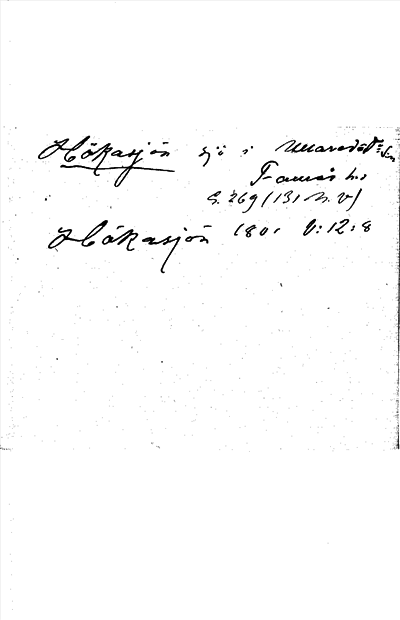 Hökasjön sjö i Ullared
Famås h.,
G. 269 (131 n. v)
Hökasjön 1801 V:12:8